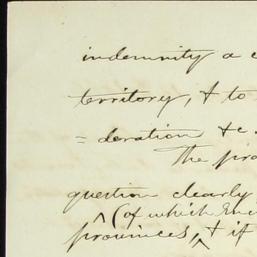 indemnity a
territory, & to
= deration &c.
The pro
question clearly
(of which
provinces, & if